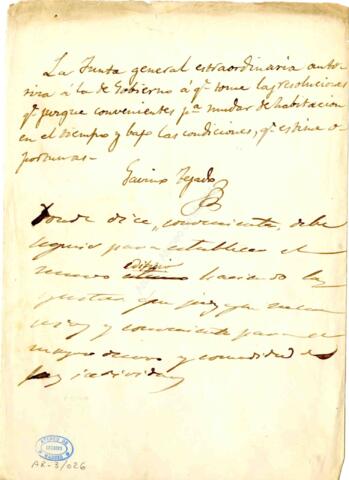 La Junta general estraordinaria auto-
riza á la de Gobierno á qe. tome las resoluciones
qe. juzgue convenientes pa. mudar de habitacion
en el tiempo y bajo las condiciones, qe. estime o-
portunas.-
Gavino Tejado
Donde dice, conveniente, debe
seguir para establecer el
nuevo edificio haciendo los
gastos que juzgue nece
y conveniente para el
mayor decoro y comodidad de
individuos
ATENEO DE
MADRID
AR-3/026